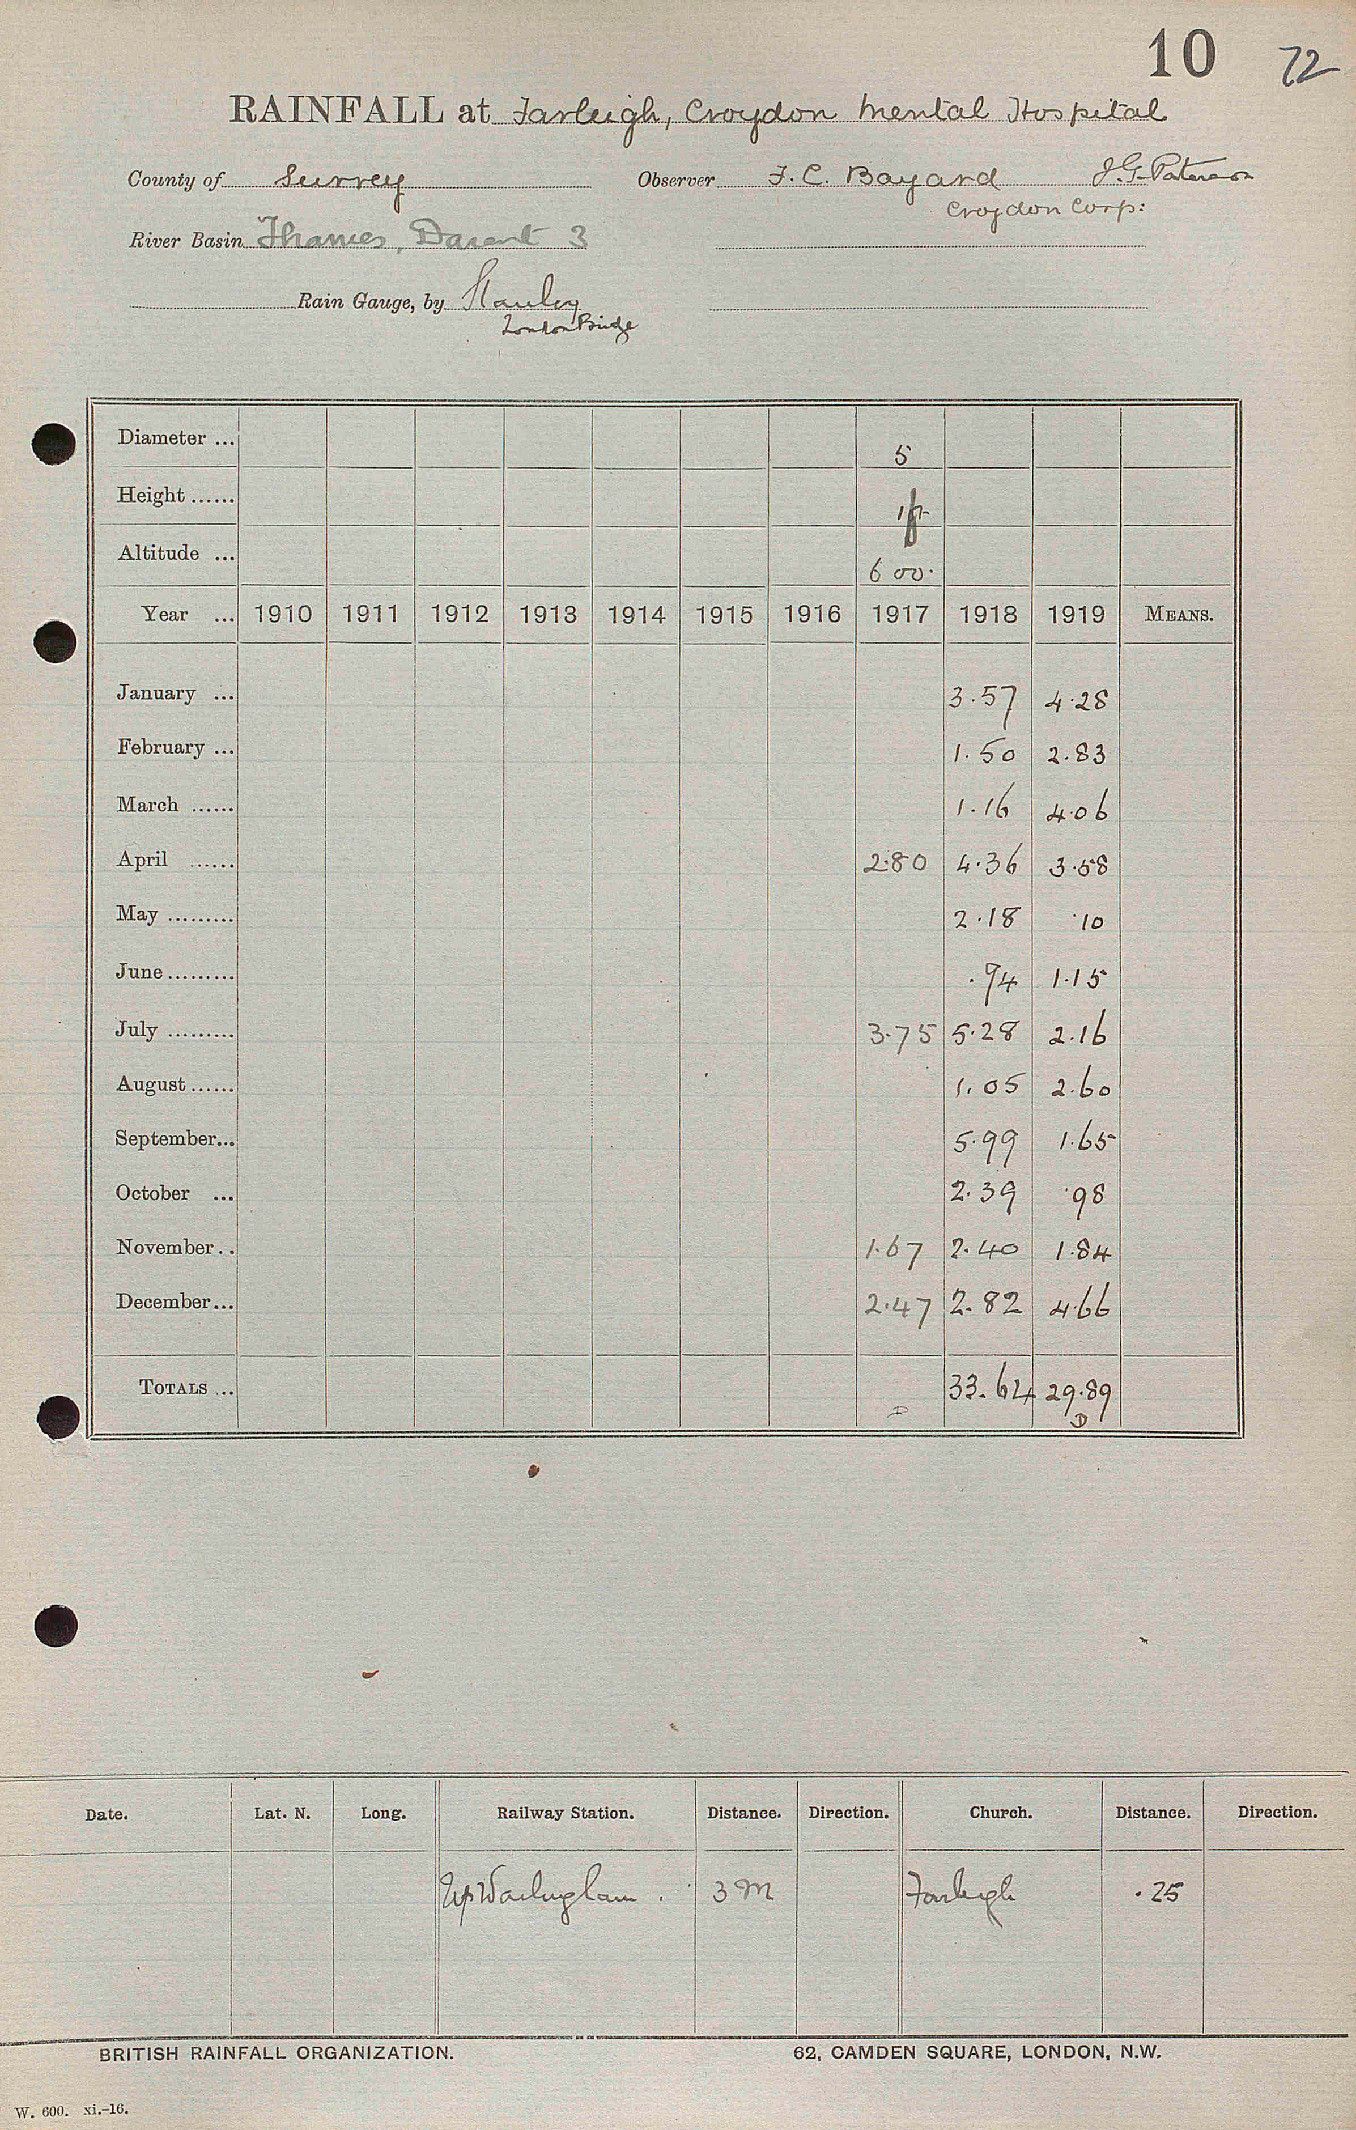 10 72
RAINFALL at Farleigh, Croydon Mental Hospital
County of Surrey Observer F. C. Bayard J. G. Paterson
Croydon Corp:
River Basin Thames, Darent 3
Rain Gauge, by Stanley
London Bridge
Diameter ... 5
Height ...... 1 ft
Altitude ... 600.
Year ... 1910 1911 1912 1913 1914 1915 1916 1917 1918 1919 MEANS.
January ... 3.57 4.28
February ... 1.50 2.83
March ...... 1.16 4.06
April ...... 2.80 4.36 3.58
May ......... 2.18 .10
June ......... .94 1.15
July ......... 3.75 5.28 2.16
August ...... 1.05 2.60
September... 5.99 1.65
October ... 2.39 .98
November.. 1.67 2.40 1.84
December... 2.47 2.82 4.66
TOTALS ... 33.64 29.89
D D
Date. Lat. N. Long. Railway Station. Distance. Direction. Church. Distance. Direction.
Up Warlingham . 3 M Farleigh .25
BRITISH RAINFALL ORGANIZATION. 62, CAMDEN SQUARE, LONDON, N.W.
W. 600. xi.-16.